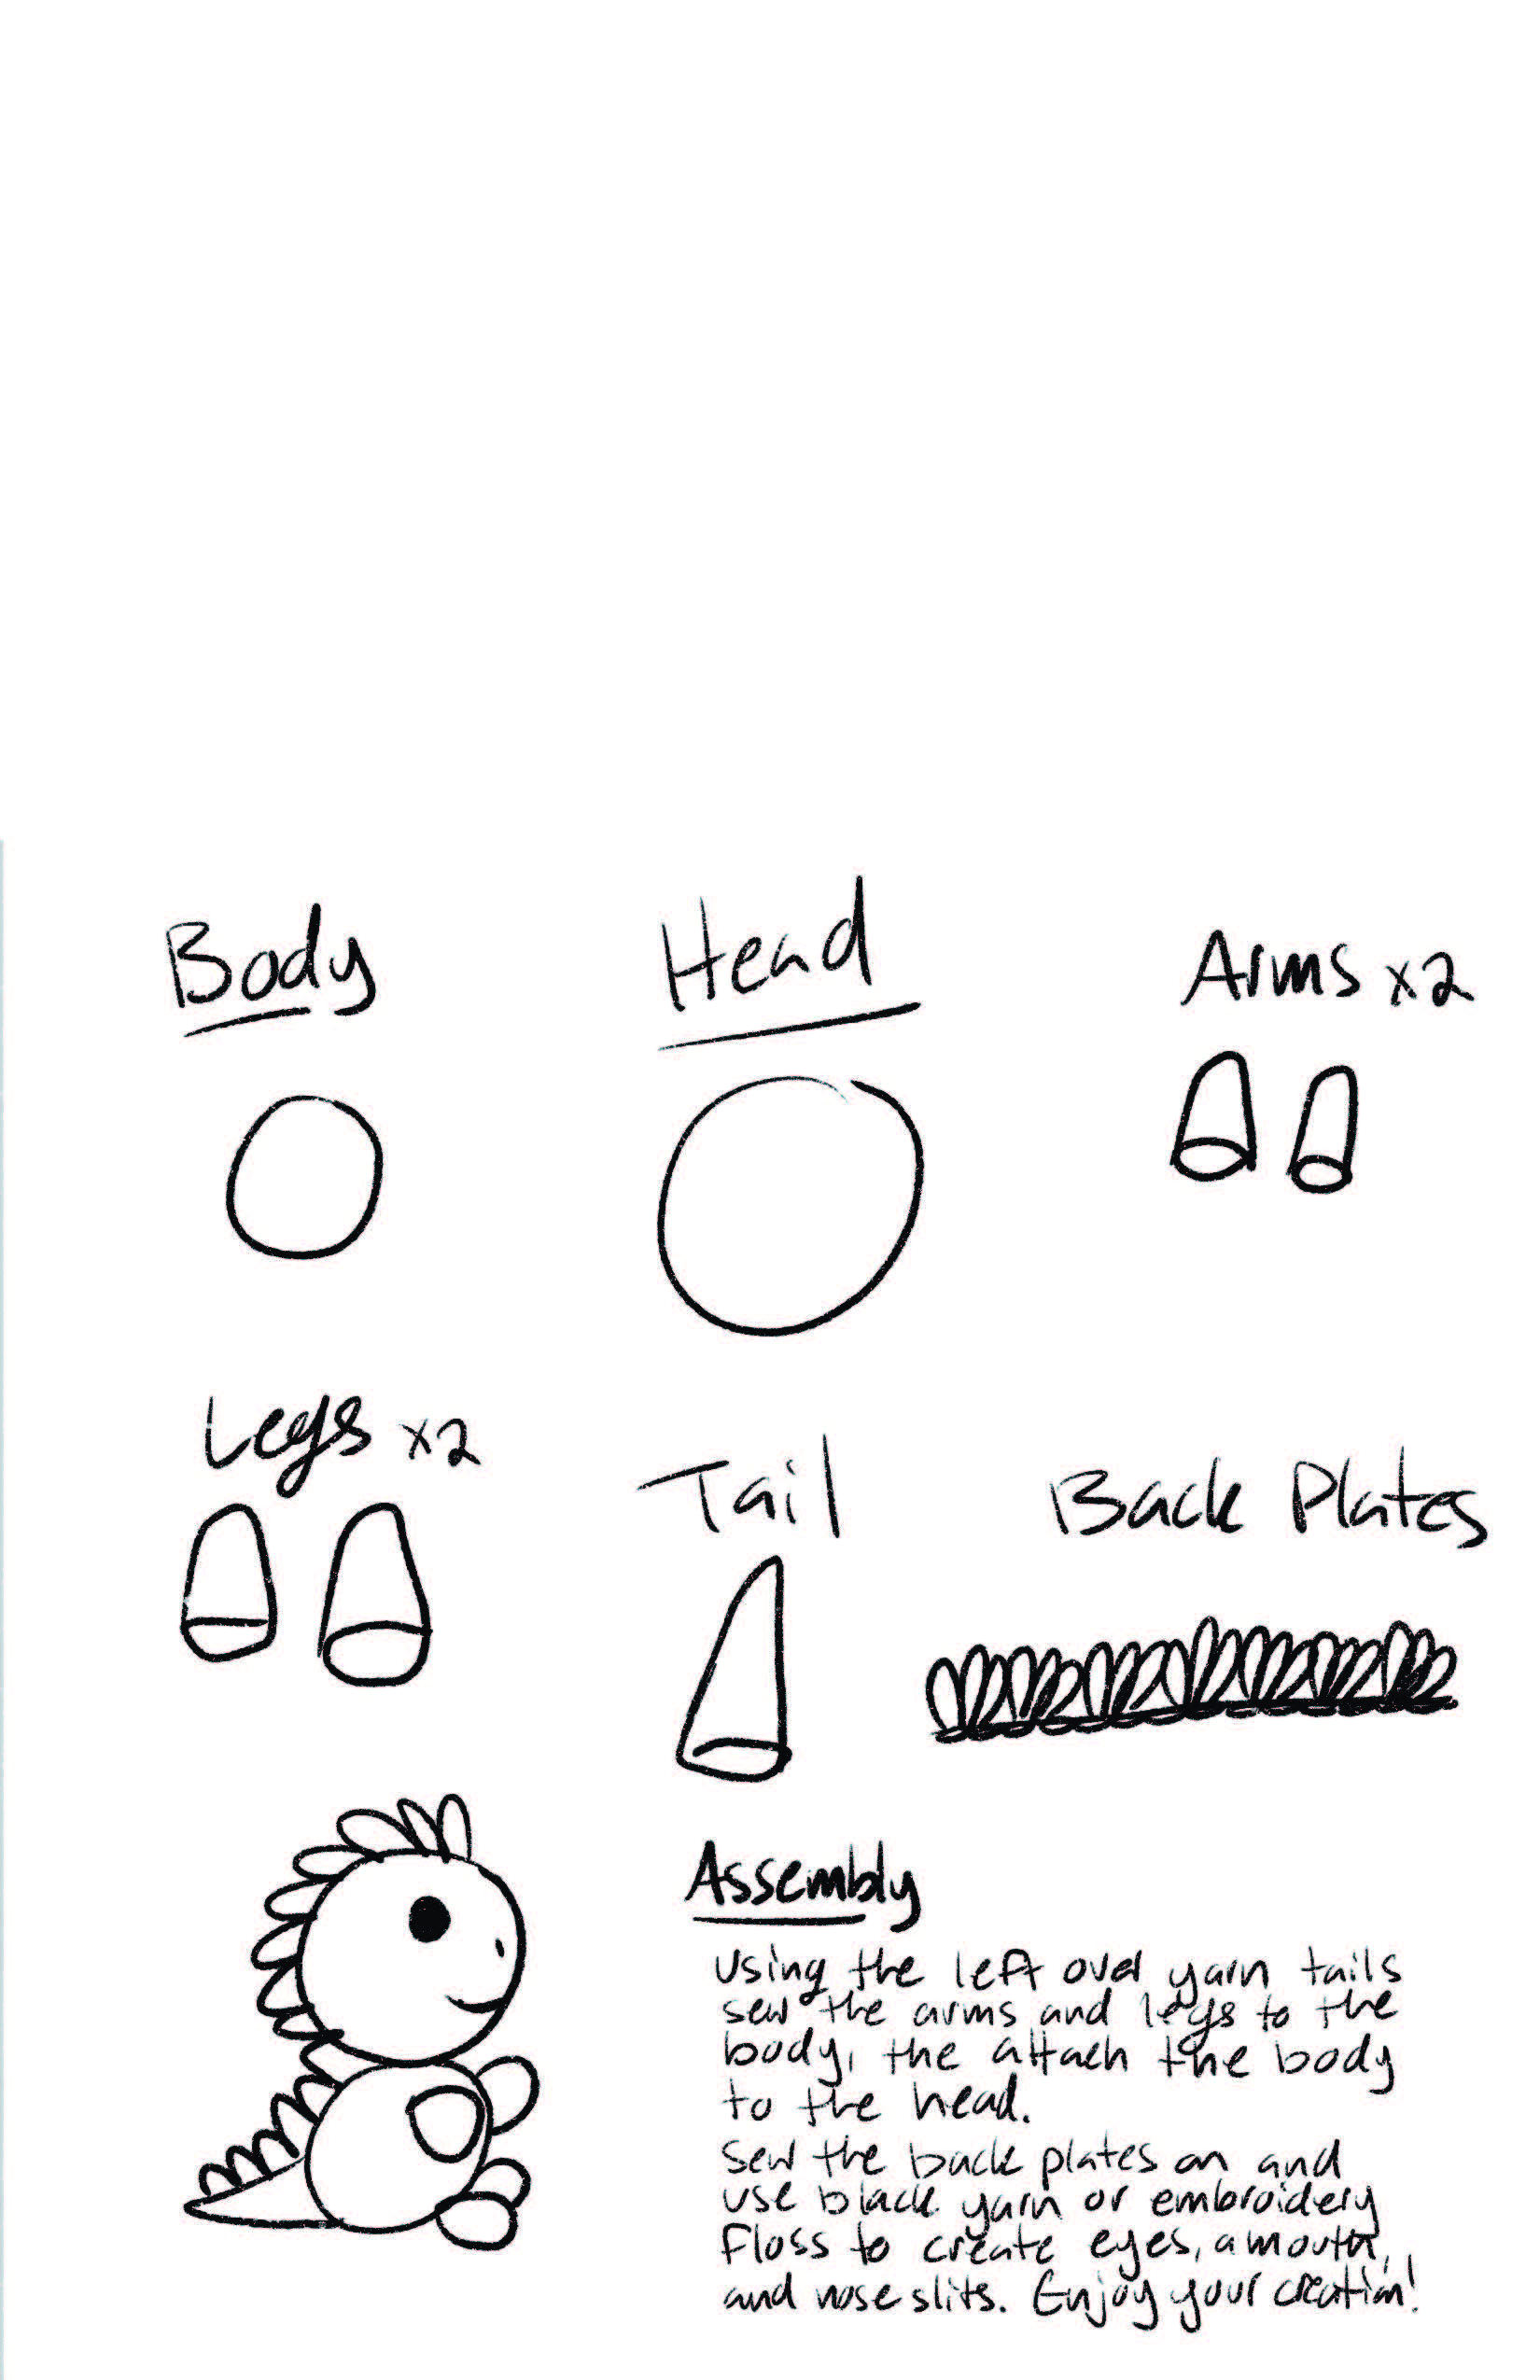 Body
Head
Arms x2
Legs x2
Tail
Back Plates
Assembly
Using the left over yarn tails
sew the arms and legs to the
body, the attach the body
to the head.
Sew the back plates on and
use black yarn or embroidery
floss to create eyes, a mouth,
and nose slits. Enjoy your creation!